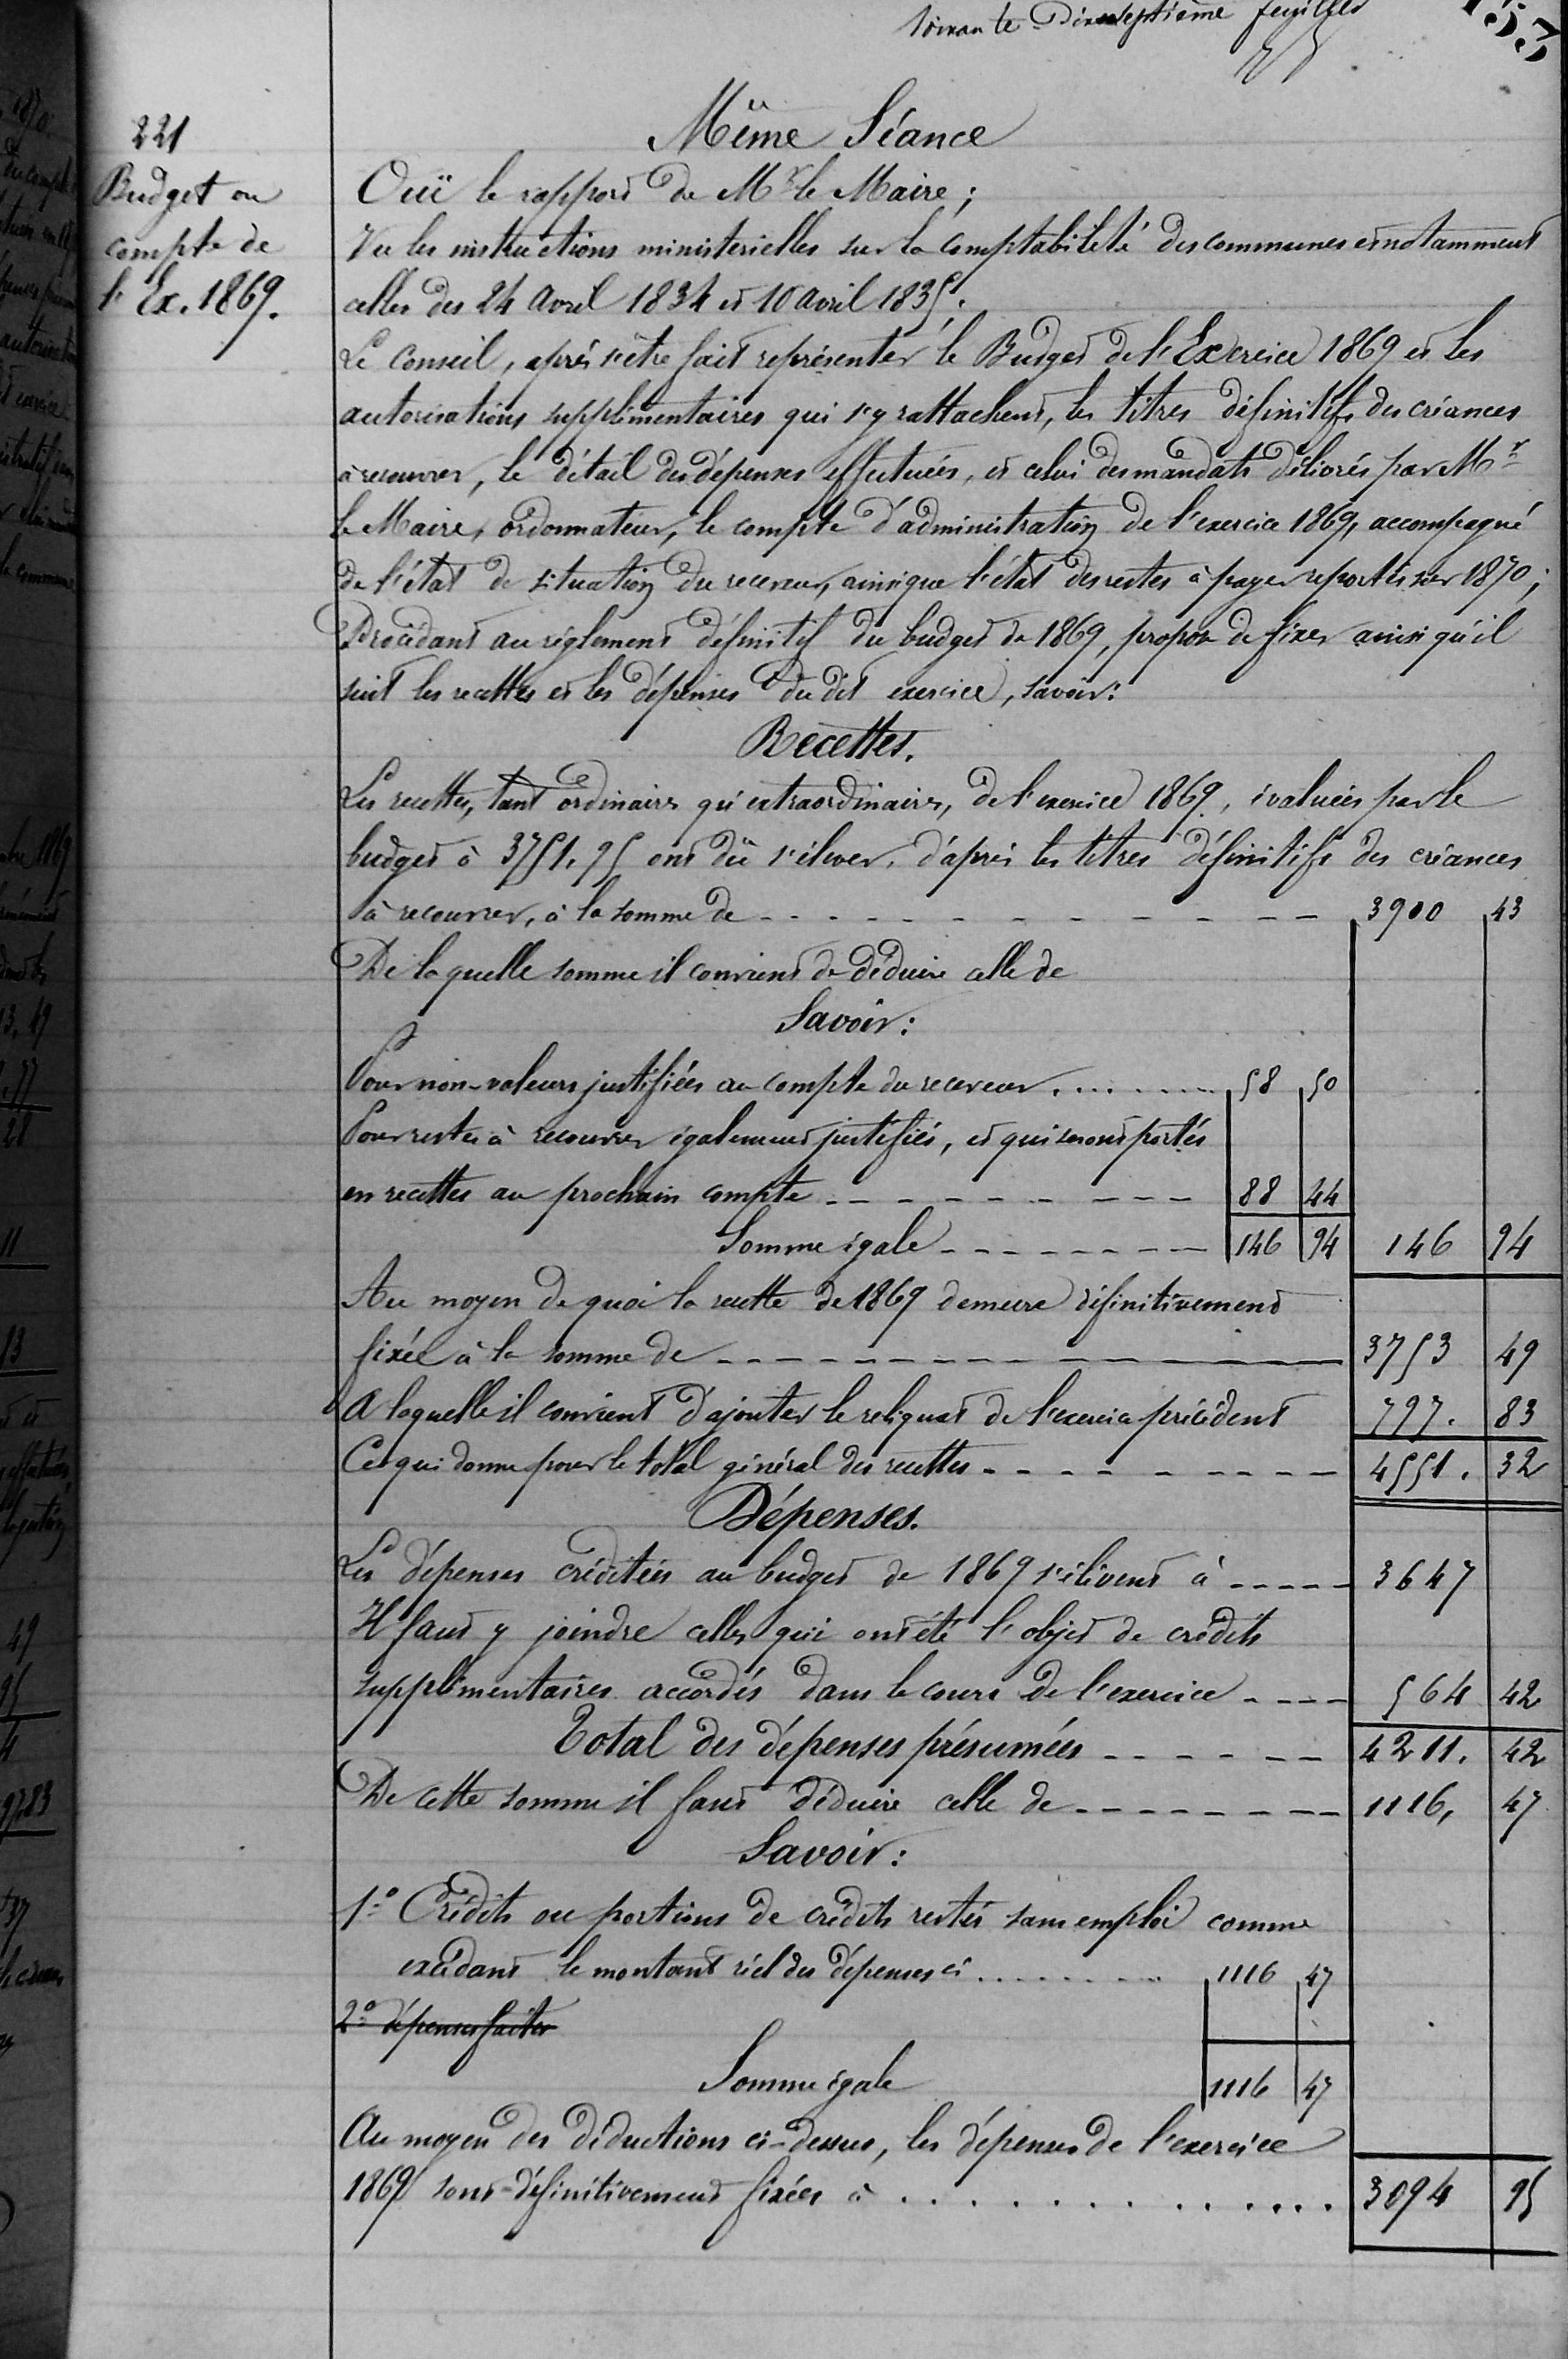 Soixante Dix-septième feuillet
153
221
Budget ou
compte de
l'Ex. 1869.
Même Séance
Ouï le rapport de Mr le Maire ;
Vu les instructions ministerielles sur la comptabilité des communes et notamment
celles des 24 Avril 1834 et 10 avril 1835 ;
Le Conseil, après s'être fait représenter le Budget de l'Exercice 1869 et les
autorisations supplémentaires qui s'y rattachent, les titres définitifs des créances
à recouvrer, le détail des dépenses effectuées, et celui des mandats délivrés par Mr
le Maire, ordonnateur, le compte d'administration de l'exercice 1869, accompagné
de l'état de situation du receveur, ainsi que l'état des restes à payer reportés sur 1870 ;
Procédant au réglement définitif du budget de 1869, propose de fixer ainsi qu'il
suit les recettes et les dépenses du dit exercice, savoir :
Recettes.
Les recettes, tant ordinaires qu'extraordinaires, de l'exercice 1869, évaluées par le
budget à 3751,95 ont dû s'élever, d'après les titres définitifs des créances
à recouvrer, à la somme de 3900 43
De laquelle somme il convient de déduire celle de
Savoir :
Pour non-valeurs justifiées au compte du receveur 58 50
Pour restes à recouvrer également justifiés, et qui seront portés
en recettes au prochain compte 88 44
Somme égale 146 94 146 94
Au moyen de quoi la recette de 1869 demeure définitivement
fixée à la somme de 3753 49
A laquelle il convient d'ajouter le reliquat de l'exercice précédent 797. 83
Ce qui donne pour le total général des recettes 4551. 32
Dépenses.
Les dépenses créditées au budget de 1869 s'élèvent à 3647
Il faut y joindre celles qui ont été l'objet de crédits
supplémentaires accordés dans le cours de l'exercice 564 42
Total des dépenses présumées 4211. 42
De cette somme il faut déduire celle de 1116, 47
Savoir :
1° Crédits ou portions de crédits restés sans emploi comme
excédant le montant réel des dépenses ci 1116 47
2° dépenses faites
Somme égale 1116 47
Au moyen des déductions ci-dessus, les dépenses de l'exercice
1869 sont définitivement fixées à 3094 95